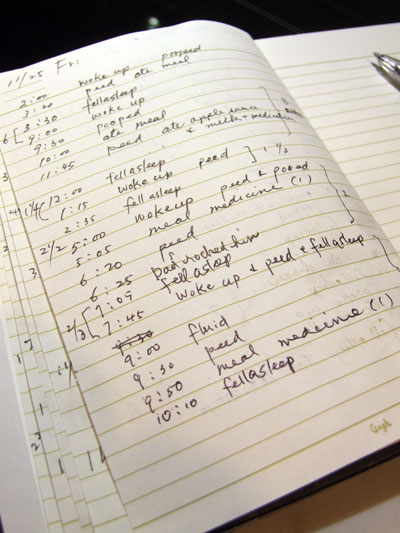 11/25 Fri
2:00 woke up pooped
3:20 peed ate meal
3:30 fell asleep
9:00 woke up
9:30 pooped
10:00 ate meal
11:45 peed ate apple sauce
& milk + medication
12:00 fell asleep
1:15 woke up peed ] 1 1/2
2:35 fell asleep
5:00 woke up peed & pooped
5:05 meal medicine (1)
6:20 peed
6:25 Dad rocked him
7:05 fell asleep
7:45 woke up & peed & fell asleep
9:00 fluid
9:30 peed
9:50 meal medicine (1)
10:10 fell asleep